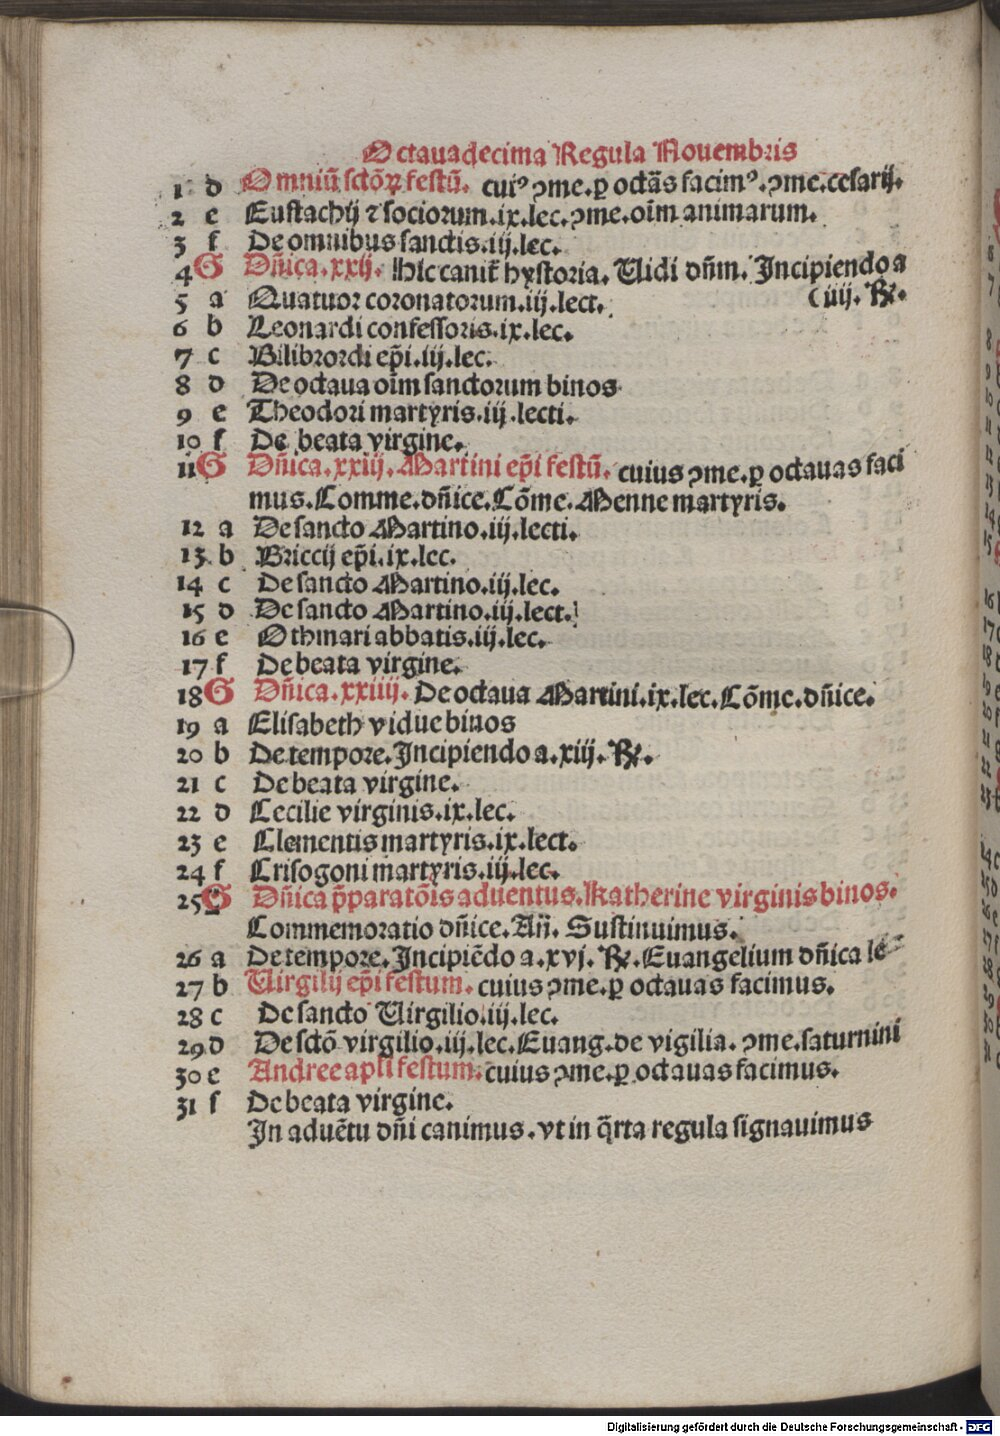 Octauadecima Regula Nouembris
1 d Omniũ sctõꝝ festũ. cuiꝰ ꝯme. ꝑ octãs facimꝰ. ꝯme. cesarij.
2 e Eustachij ⁊ socioꝛum. ix. lec. ꝯme. oĩm animarum.
3 f De omnibus sanctis. iij. lec.
4 G Dñica. xxij. Hic canit̃ hystoꝛia. Uidi dñm. Incipiendo a
5 a Quatuoꝛ coꝛonatoꝛum. iij. lect. (iiij. ℟.
6 b Leonardi confessoꝛis. ix. lec.
7 c Bilibꝛoꝛdi ep̃i. iij. lec.
8 d De octaua oĩm sanctoꝛum binos
9 e Theodoꝛi martyris. iij. lecti.
10 f De beata virgine.
11 G Dñica. xxiij. Martini ep̃i festũ. cuius ꝯme. ꝑ octauas faci
mus. Comme. dñice. Cõme. Menne martyris.
12 a De sancto Martino. iij. lecti.
13 b Bꝛiccij ep̃i. ix. lec.
14 c De sancto Martino. iij. lec.
15 d De sancto Martino. iij. lect.
16 e Othmari abbatis. iij. lec.
17 f De beata virgine.
18 G Dñica. xxiiij. De octaua Martini. ix. lec. Cõme. dñice.
19 a Elisabeth vidue binos
20 b De tempoꝛe. Incipiendo a. xiij. ℟.
21 c De beata virgine.
22 d Cecilie virginis. ix. lec.
23 e Clementis martyris. ix. lect.
24 f Crisogoni martyris. iij. lec.
25 G Dñica p̃paratõis aduentus. Katherine virginis binos.
Commemoꝛatio dñice. Añ. Sustinuimus.
26 a De tempoꝛe. Incipiẽdo a. xvj. ℟. Euangelium dñica le
27 b Uirgilij ep̃i festum. cuius ꝯme. ꝑ octauas facimus.
28 c De sancto Uirgilio. iij. lec.
29 d De sctõ virgilio. iij. lec. Euang. de vigilia. ꝯme. saturnini
30 e Andree apli festum. cuius ꝯme. ꝑ octauas facimus.
31 f De beata virgine.
In aduẽtu dñi canimus. vt in q̃rta regula signauimus
Digitalisierung gefördert durch die Deutsche Forschungsgemeinschaft - DFG